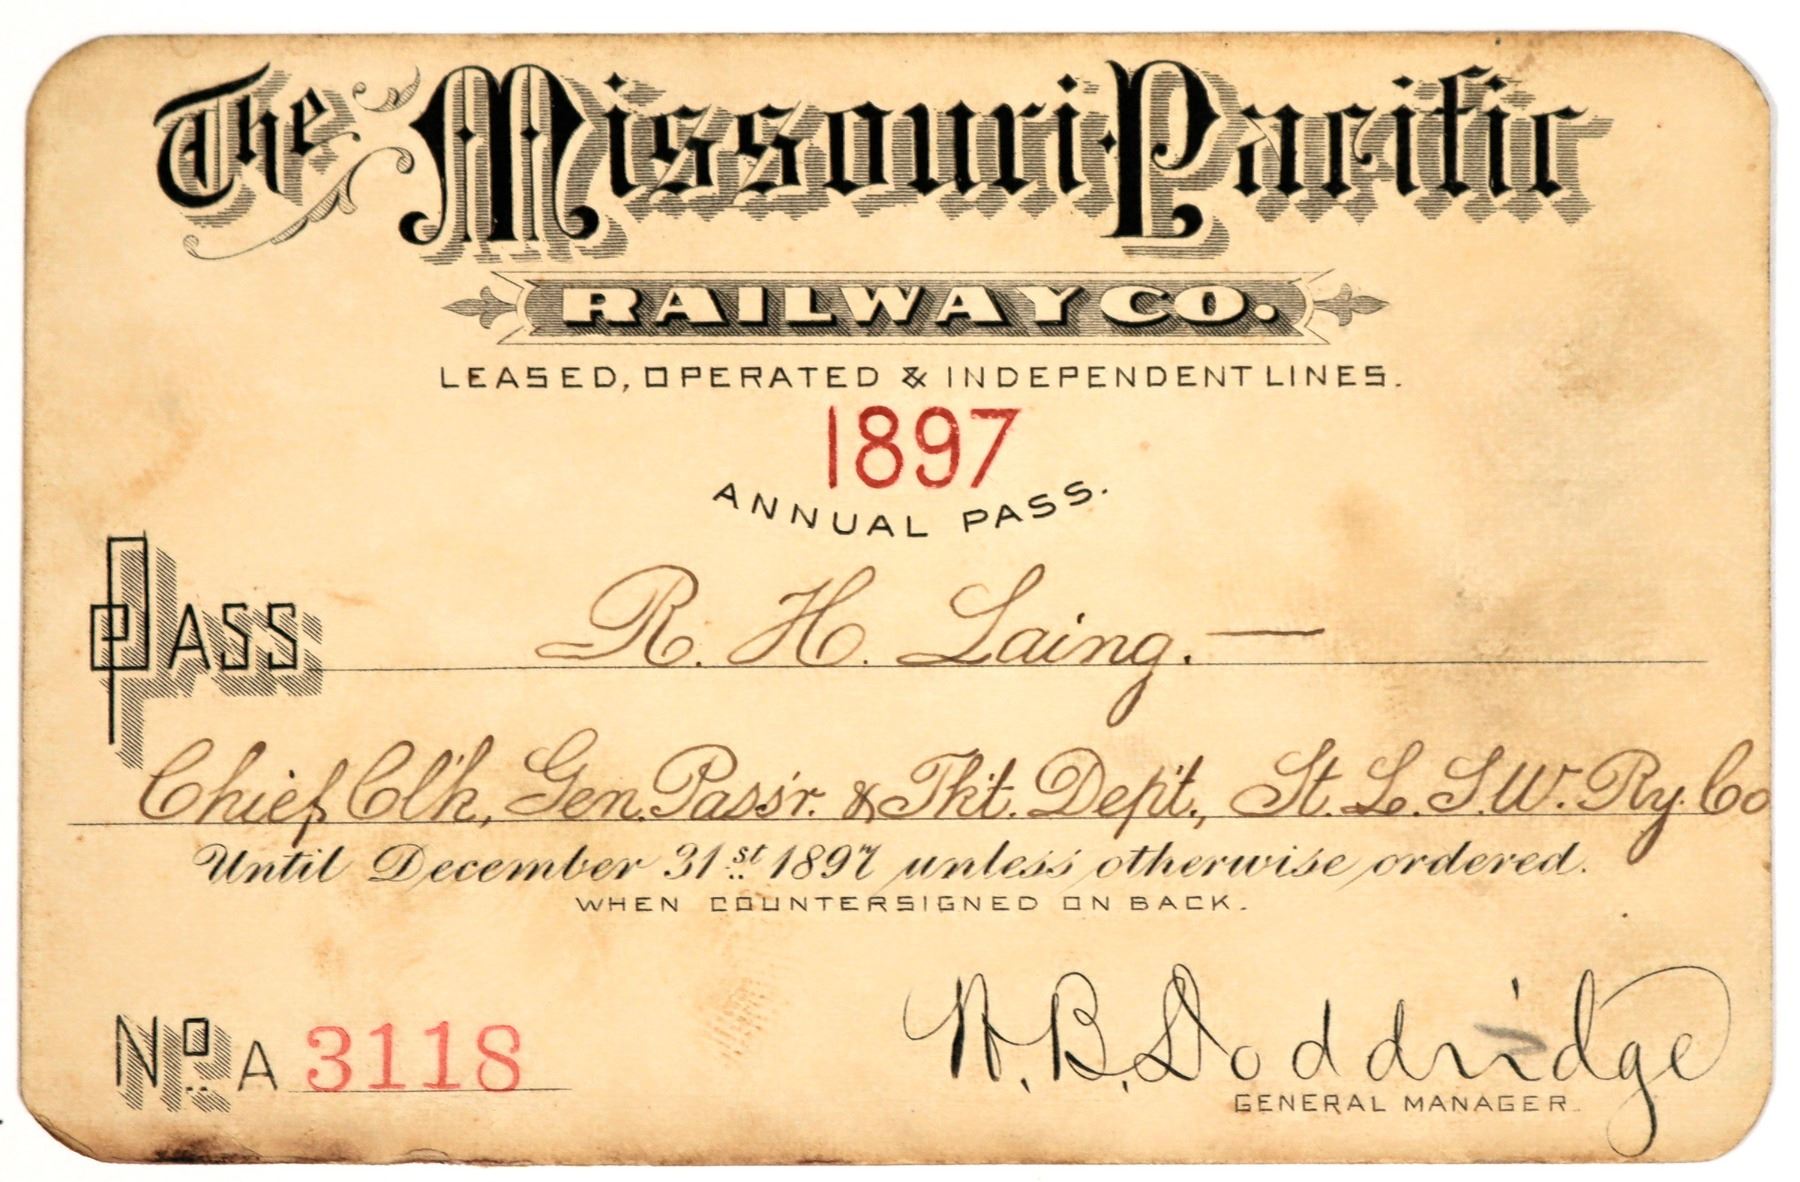 The Missouri Pacific
RAILWAY CO.
LEASED, OPERATED & INDEPENDENT LINES.
1897
ANNUAL PASS.
PASS R. H. Laing.—
Chief Cl'k, Gen. Pass'r. & Tkt. Dep't., St. L. S. W. Ry. Co
Until December 31st 1897 unless otherwise ordered.
WHEN COUNTERSIGNED ON BACK.
No. A 3118
W. B. Doddridge
GENERAL MANAGER.